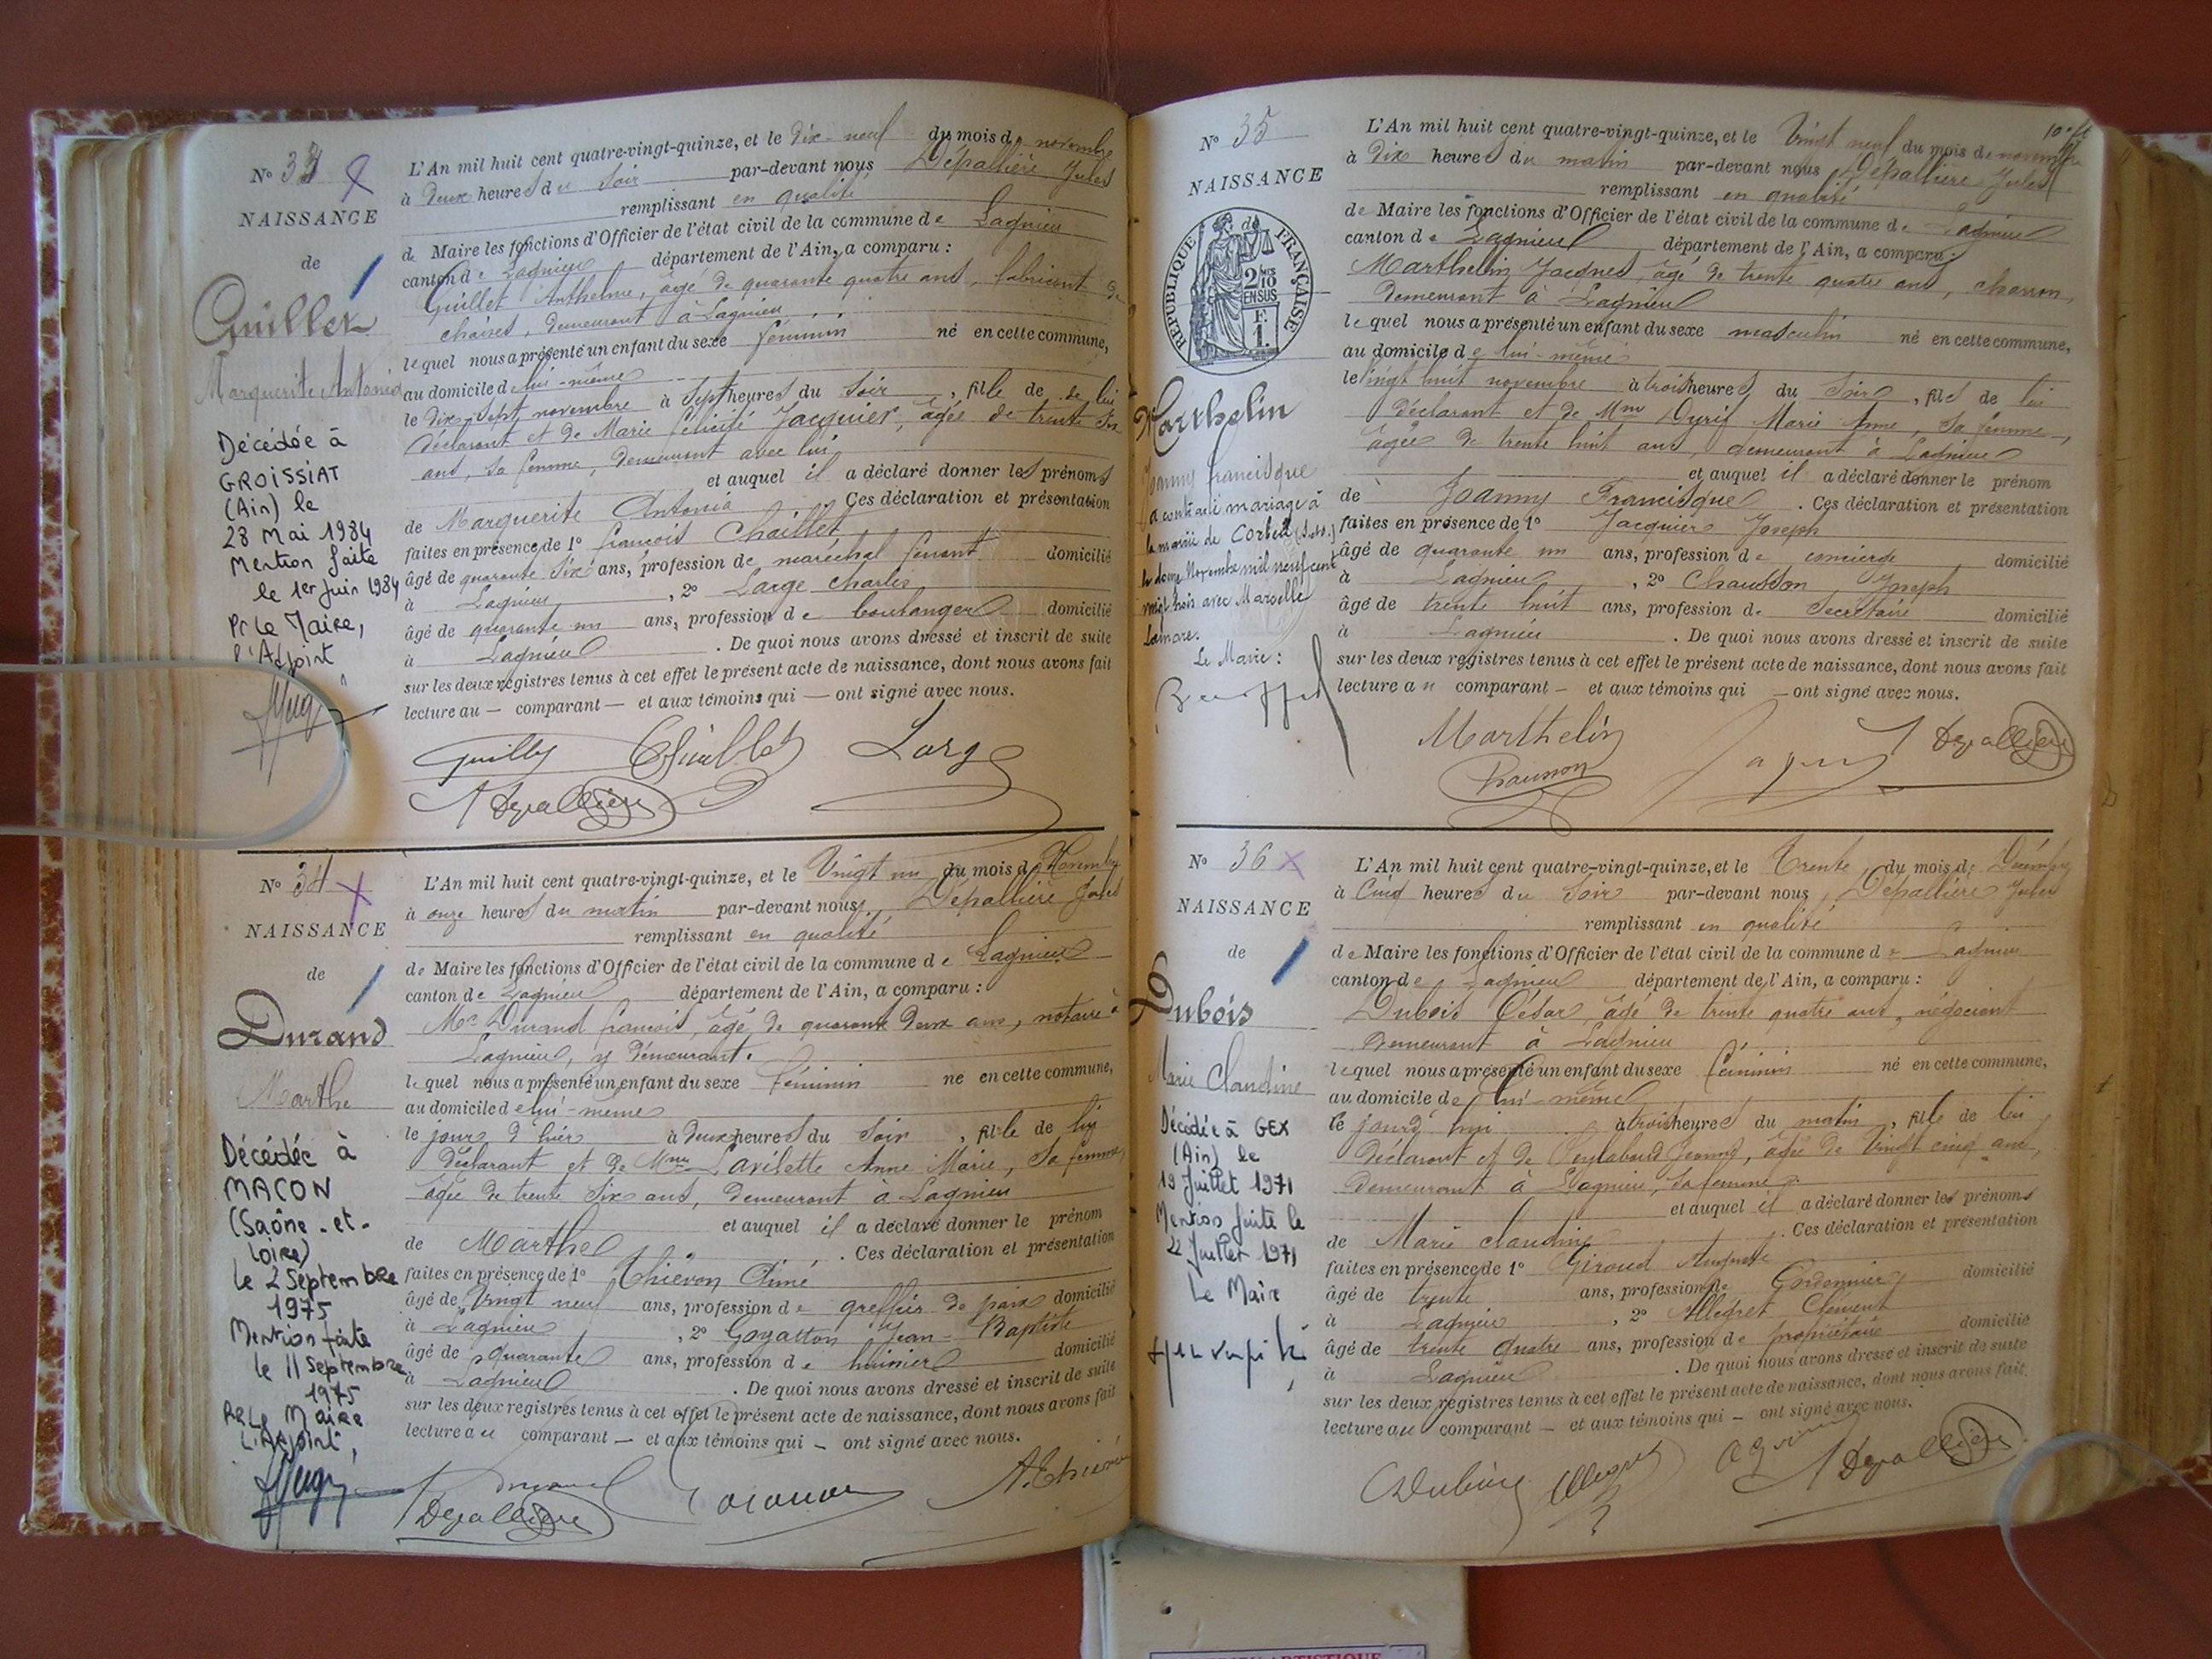 N° 33
NAISSANCE
de
Guillet
Marguerite Antonia
Décédée à
GROISSIAT
(Ain) le
28 Mai 1984
Mention faite
le 1er Juin 1984
Pr Le Maire,
l'Adjoint
L'An mil huit cent quatre-vingt-quinze, et le Dix-neuf du mois de novembre
à Deux heures du Soir par-devant nous Dépallière Jules
remplissant en qualité
de Maire les fonctions d'Officier de l'état civil de la commune de Lagnieu
canton de Lagnieu département de l'Ain, a comparu :
Guillet Anthelme, âgé de quarante quatre ans, fabricant de
chaises, demeurant à Lagnieu
lequel nous a présenté un enfant du sexe féminin né en cette commune,
au domicile de lui-même
le dix-sept novembre à Sept heures du Soir, fille de de lui
déclarant et de Marie Félicité Jacquier, âgée de trente six
ans, sa femme, demeurant avec lui
et auquel il a déclaré donner les prénoms
de Marguerite Antonia Ces déclaration et présentation
faites en présence de 1° françois Chaillet
âgé de quarante six ans, profession de maréchal ferrant domicilié
à Lagnieu, 2° Large Charles
âgé de quarante un ans, profession de boulanger domicilié
à Lagnieu. De quoi nous avons dressé et inscrit de suite
sur les deux registres tenus à cet effet le présent acte de naissance, dont nous avons fait
lecture au — comparant — et aux témoins qui — ont signé avec nous.
Large
Depallière
N° 34
NAISSANCE
de
Durand
Marthe
Décédée à
MACON
(Saône-et-
Loire)
le 2 Septembre
1975
Mention faite
le 11 Septembre
1975
Pr Le Maire
L'Adjoint,
L'An mil huit cent quatre-vingt-quinze, et le Vingt un du mois de Novembre
à onze heures du matin par-devant nous, Dépallière Jules
remplissant en qualité
de Maire les fonctions d'Officier de l'état civil de la commune de Lagnieu
canton de Lagnieu département de l'Ain, a comparu :
Me Durand françois, âgé de quarante deux ans, notaire à
Lagnieu, y demeurant.
lequel nous a présenté un enfant du sexe féminin né en cette commune,
au domicile de lui-même
le jour d'hier à deux heures du Soir, fille de lui
déclarant et de Mme Lavilette Anne Marie, Sa femme,
âgée de trente six ans, demeurant à Lagnieu
et auquel il a déclaré donner le prénom
de Marthe. Ces déclaration et présentation
faites en présence de 1° Thiévon Aimé
âgé de Vingt neuf ans, profession de greffier de paix domicilié
à Lagnieu, 2° Goyatton Jean-Baptiste
âgé de quarante ans, profession de huissier domicilié
à Lagnieu. De quoi nous avons dressé et inscrit de suite
sur les deux registres tenus à cet effet le présent acte de naissance, dont nous avons fait
lecture au comparant — et aux témoins qui — ont signé avec nous.
Depallière
N° 35
NAISSANCE
RÉPUBLIQUE FRANÇAISE
2/10 EN SUS
F. 1.
Marthelin
Joanny francisque
a contracté mariage à
la mairie de Corbeil
le douze Novembre mil neuf cent
vingt trois avec Marcelle
Lamare.
Le Maire :
L'An mil huit cent quatre-vingt-quinze, et le Vingt neuf du mois de novembre
à Dix heures du matin par-devant nous Dépallière Jules
remplissant en qualité
de Maire les fonctions d'Officier de l'état civil de la commune de Lagnieu
canton de Lagnieu département de l'Ain, a comparu :
Marthelin Jacques, âgé de trente quatre ans, charron,
demeurant à Lagnieu
lequel nous a présenté un enfant du sexe masculin né en cette commune,
au domicile de lui-même
le vingt huit novembre à trois heures du Soir, fils de lui
déclarant et de Mme Durif Marie Anne, sa femme,
âgée de trente huit ans, demeurant à Lagnieu
et auquel il a déclaré donner le prénom
de Joanny Francisque. Ces déclaration et présentation
faites en présence de 1° Jacquier Joseph
âgé de quarante un ans, profession de concierge domicilié
à Lagnieu, 2° Chausson Joseph
âgé de trente huit ans, profession de Secrétaire domicilié
à Lagnieu. De quoi nous avons dressé et inscrit de suite
sur les deux registres tenus à cet effet le présent acte de naissance, dont nous avons fait
lecture au comparant — et aux témoins qui — ont signé avec nous.
Marthelin
Depallière
Chausson
N° 36
NAISSANCE
de
Dubois
Marie Claudine
Décédée à GEX
(Ain) le
19 Juillet 1971
Mention faite le
22 Juillet 1971
Le Maire
L'An mil huit cent quatre-vingt-quinze, et le Trente du mois de Décembre
à Cinq heures du Soir par-devant nous Dépallière Jules
remplissant en qualité
de Maire les fonctions d'Officier de l'état civil de la commune de Lagnieu
canton de Lagnieu département de l'Ain, a comparu :
Dubois César, âgé de trente quatre ans, négociant
demeurant à Lagnieu
lequel nous a présenté un enfant du sexe féminin né en cette commune,
au domicile de lui-même
le jourd'hui à trois heures du matin, fille de lui
déclarant et de Jeanne, âgée de Vingt cinq ans,
demeurant à Lagnieu, sa femme.
et auquel il a déclaré donner les prénoms
de Marie claudine. Ces déclaration et présentation
faites en présence de 1° Giroud Auguste
âgé de trente ans, profession de Cordonnier domicilié
à Lagnieu, 2° Allegret Clément
âgé de trente quatre ans, profession de propriétaire domicilié
à Lagnieu. De quoi nous avons dressé et inscrit de suite
sur les deux registres tenus à cet effet le présent acte de naissance, dont nous avons fait
lecture au comparant — et aux témoins qui — ont signé avec nous.
Depallière